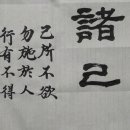 諸己
己所不欲
勿施於人
行有不得